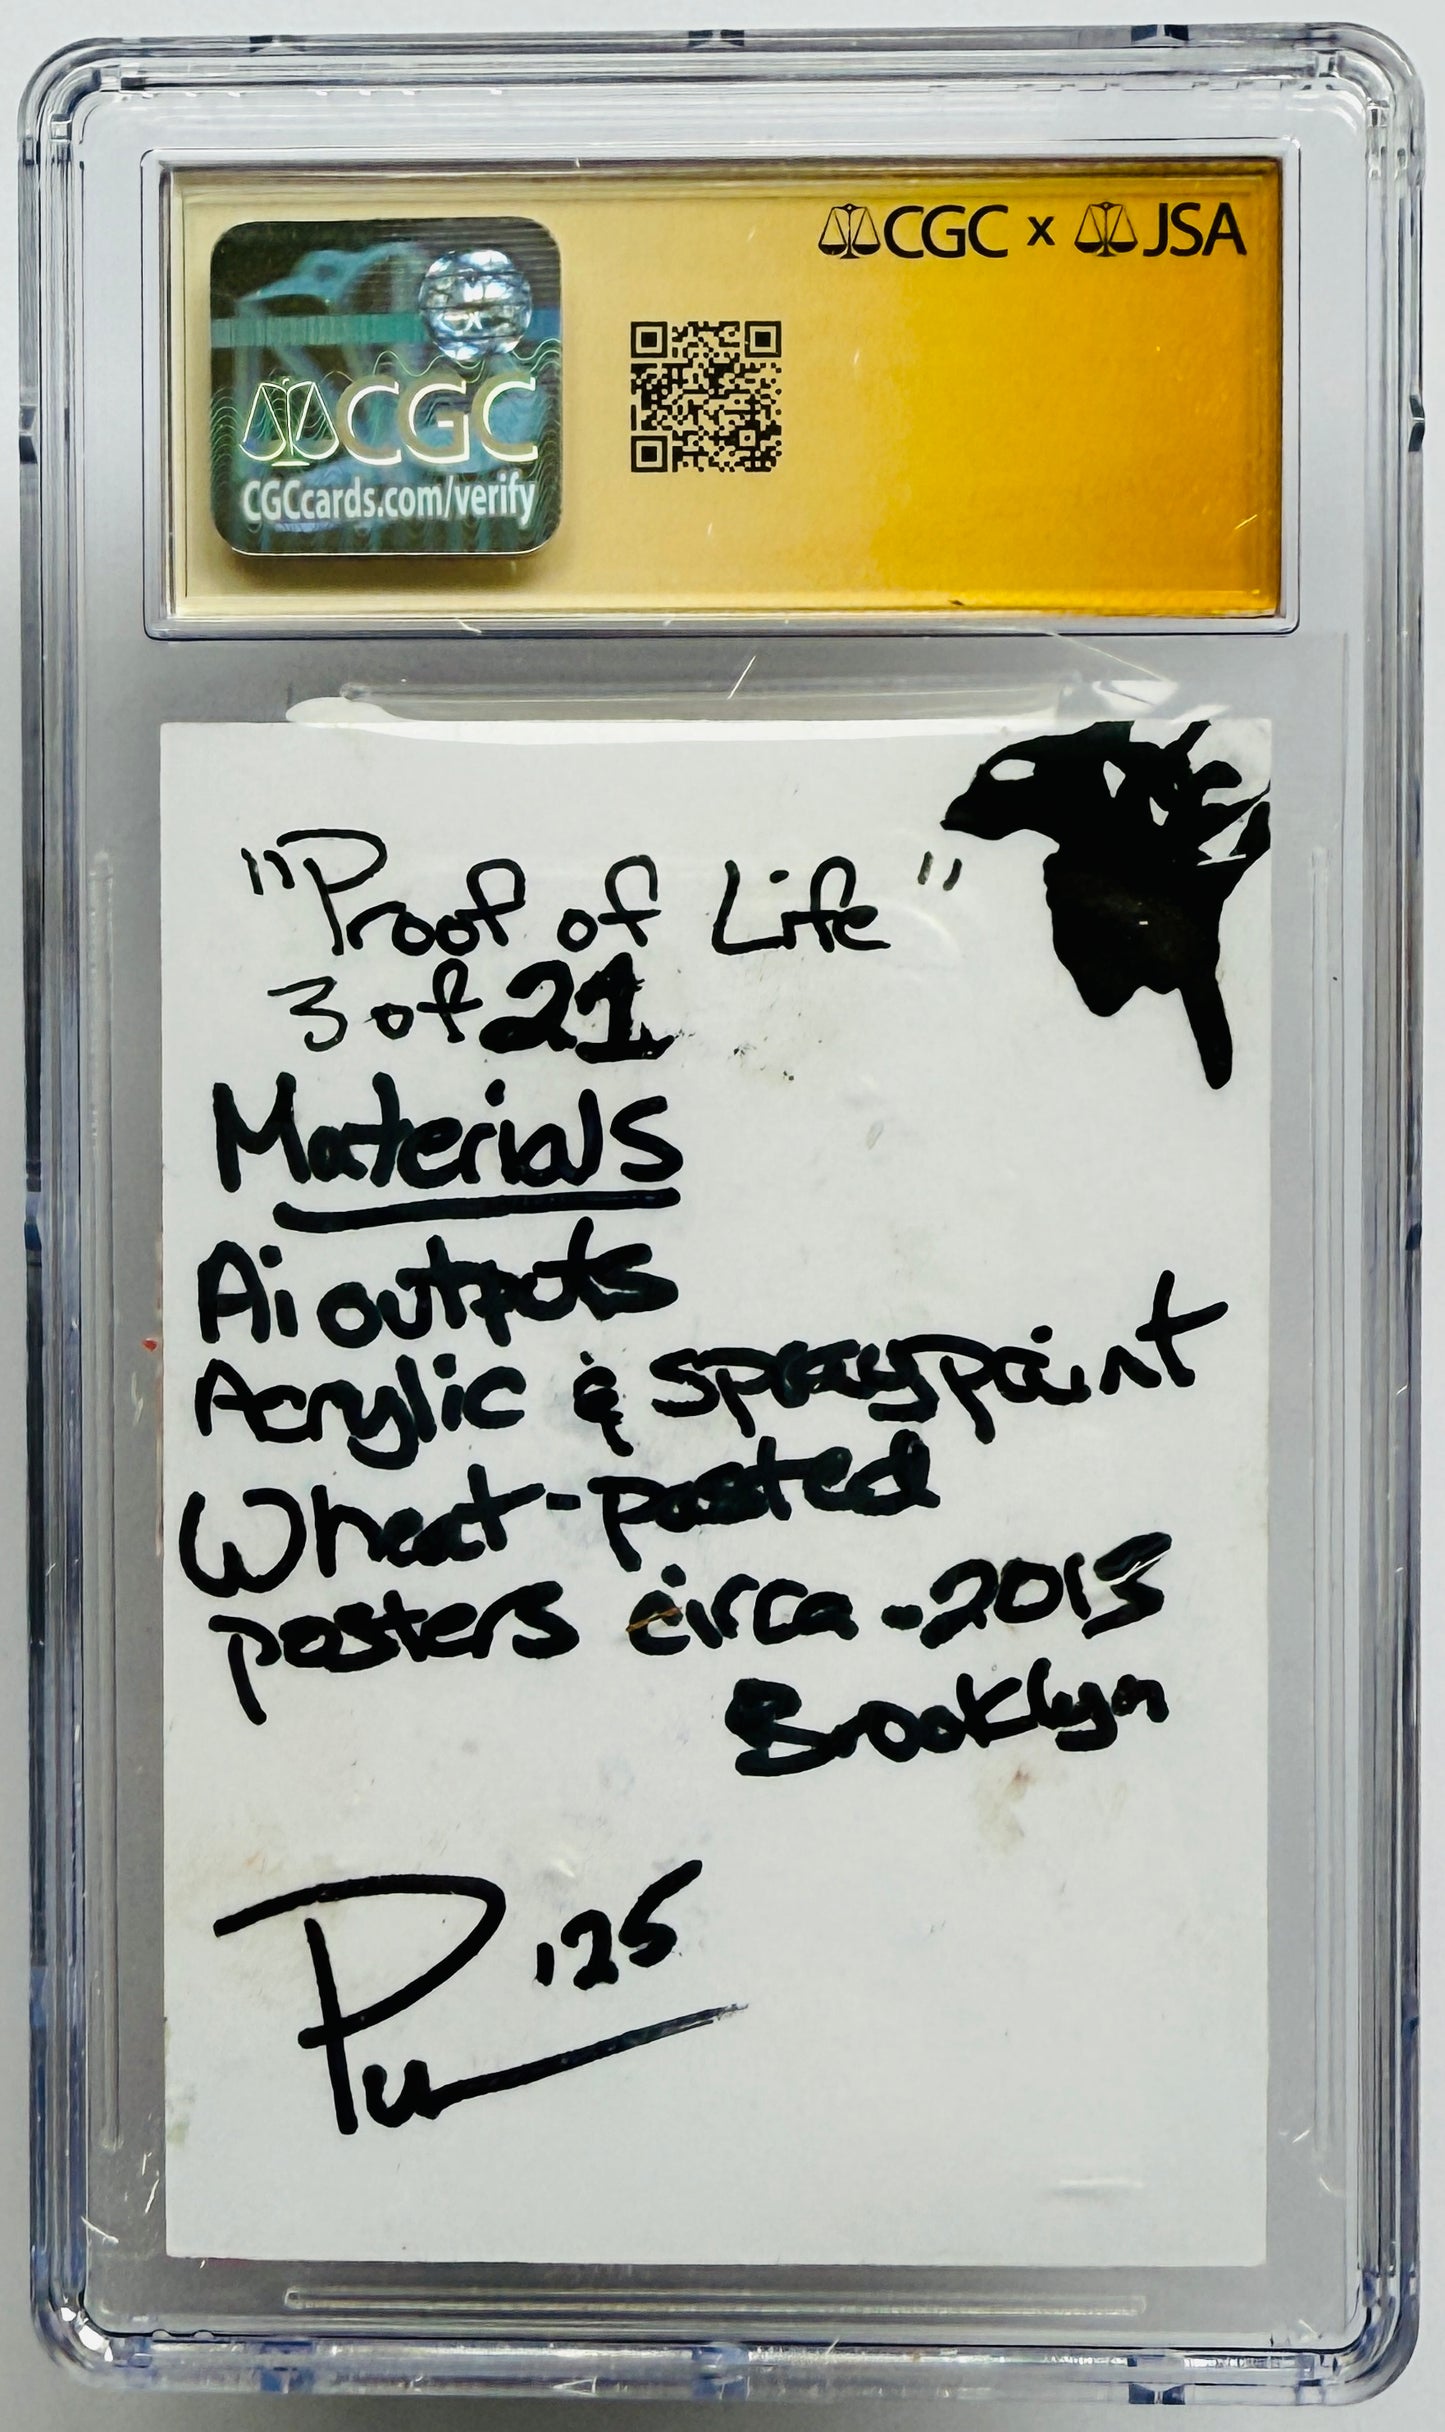 CGC x JSA
CGC
CGCcards.com/verify
"Proof of Life"
3 of 21
Materials
Ai outputs
Acrylic & spraypaint
Wheat-pasted
posters circa - 2013
Brooklyn
'25